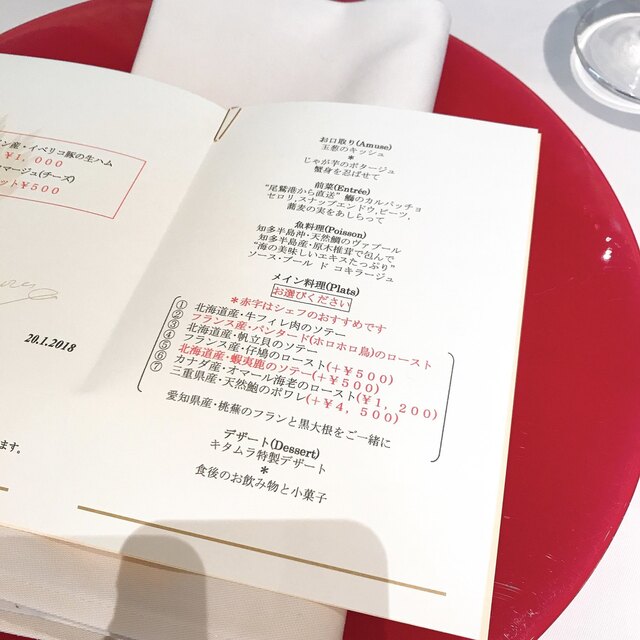 ン産・イベリコ豚の生ハム
￥1,000
マージュ(チーズ)
ット￥500
20.1.2018
ます。
お口取り(Amuse)
玉葱のキッシュ
*
じゃが芋のポタージュ
蟹身を忍ばせて
前菜(Entrée)
"尾鷲港から直送" 鰤のカルパッチョ
セロリ,スナップエンドウ,ビーツ,
蕎麦の実をあしらって
魚料理(Poisson)
知多半島沖・天然鯛のヴァプール
知多半島産・原木椎茸で包んで
"海の美味しいエキスたっぷり"
ソース・ブール ド コキラージュ
メイン料理(Plats)
お選びください
*赤字はシェフのおすすめです
① 北海道産・牛フィレ肉のソテー
② フランス産・パンタード(ホロホロ鳥)のロースト
③ 北海道産・帆立貝のソテー
④ フランス産・仔鳩のロースト(+￥500)
⑤ 北海道産・蝦夷鹿のソテー(+￥500)
⑥ カナダ産・オマール海老のロースト(￥1,200)
⑦ 三重県産・天然鮑のポワレ(+￥4,500)
愛知県産・桃蕪のフランと黒大根をご一緒に
デザート(Dessert)
キタムラ特製デザート
*
食後のお飲み物と小菓子